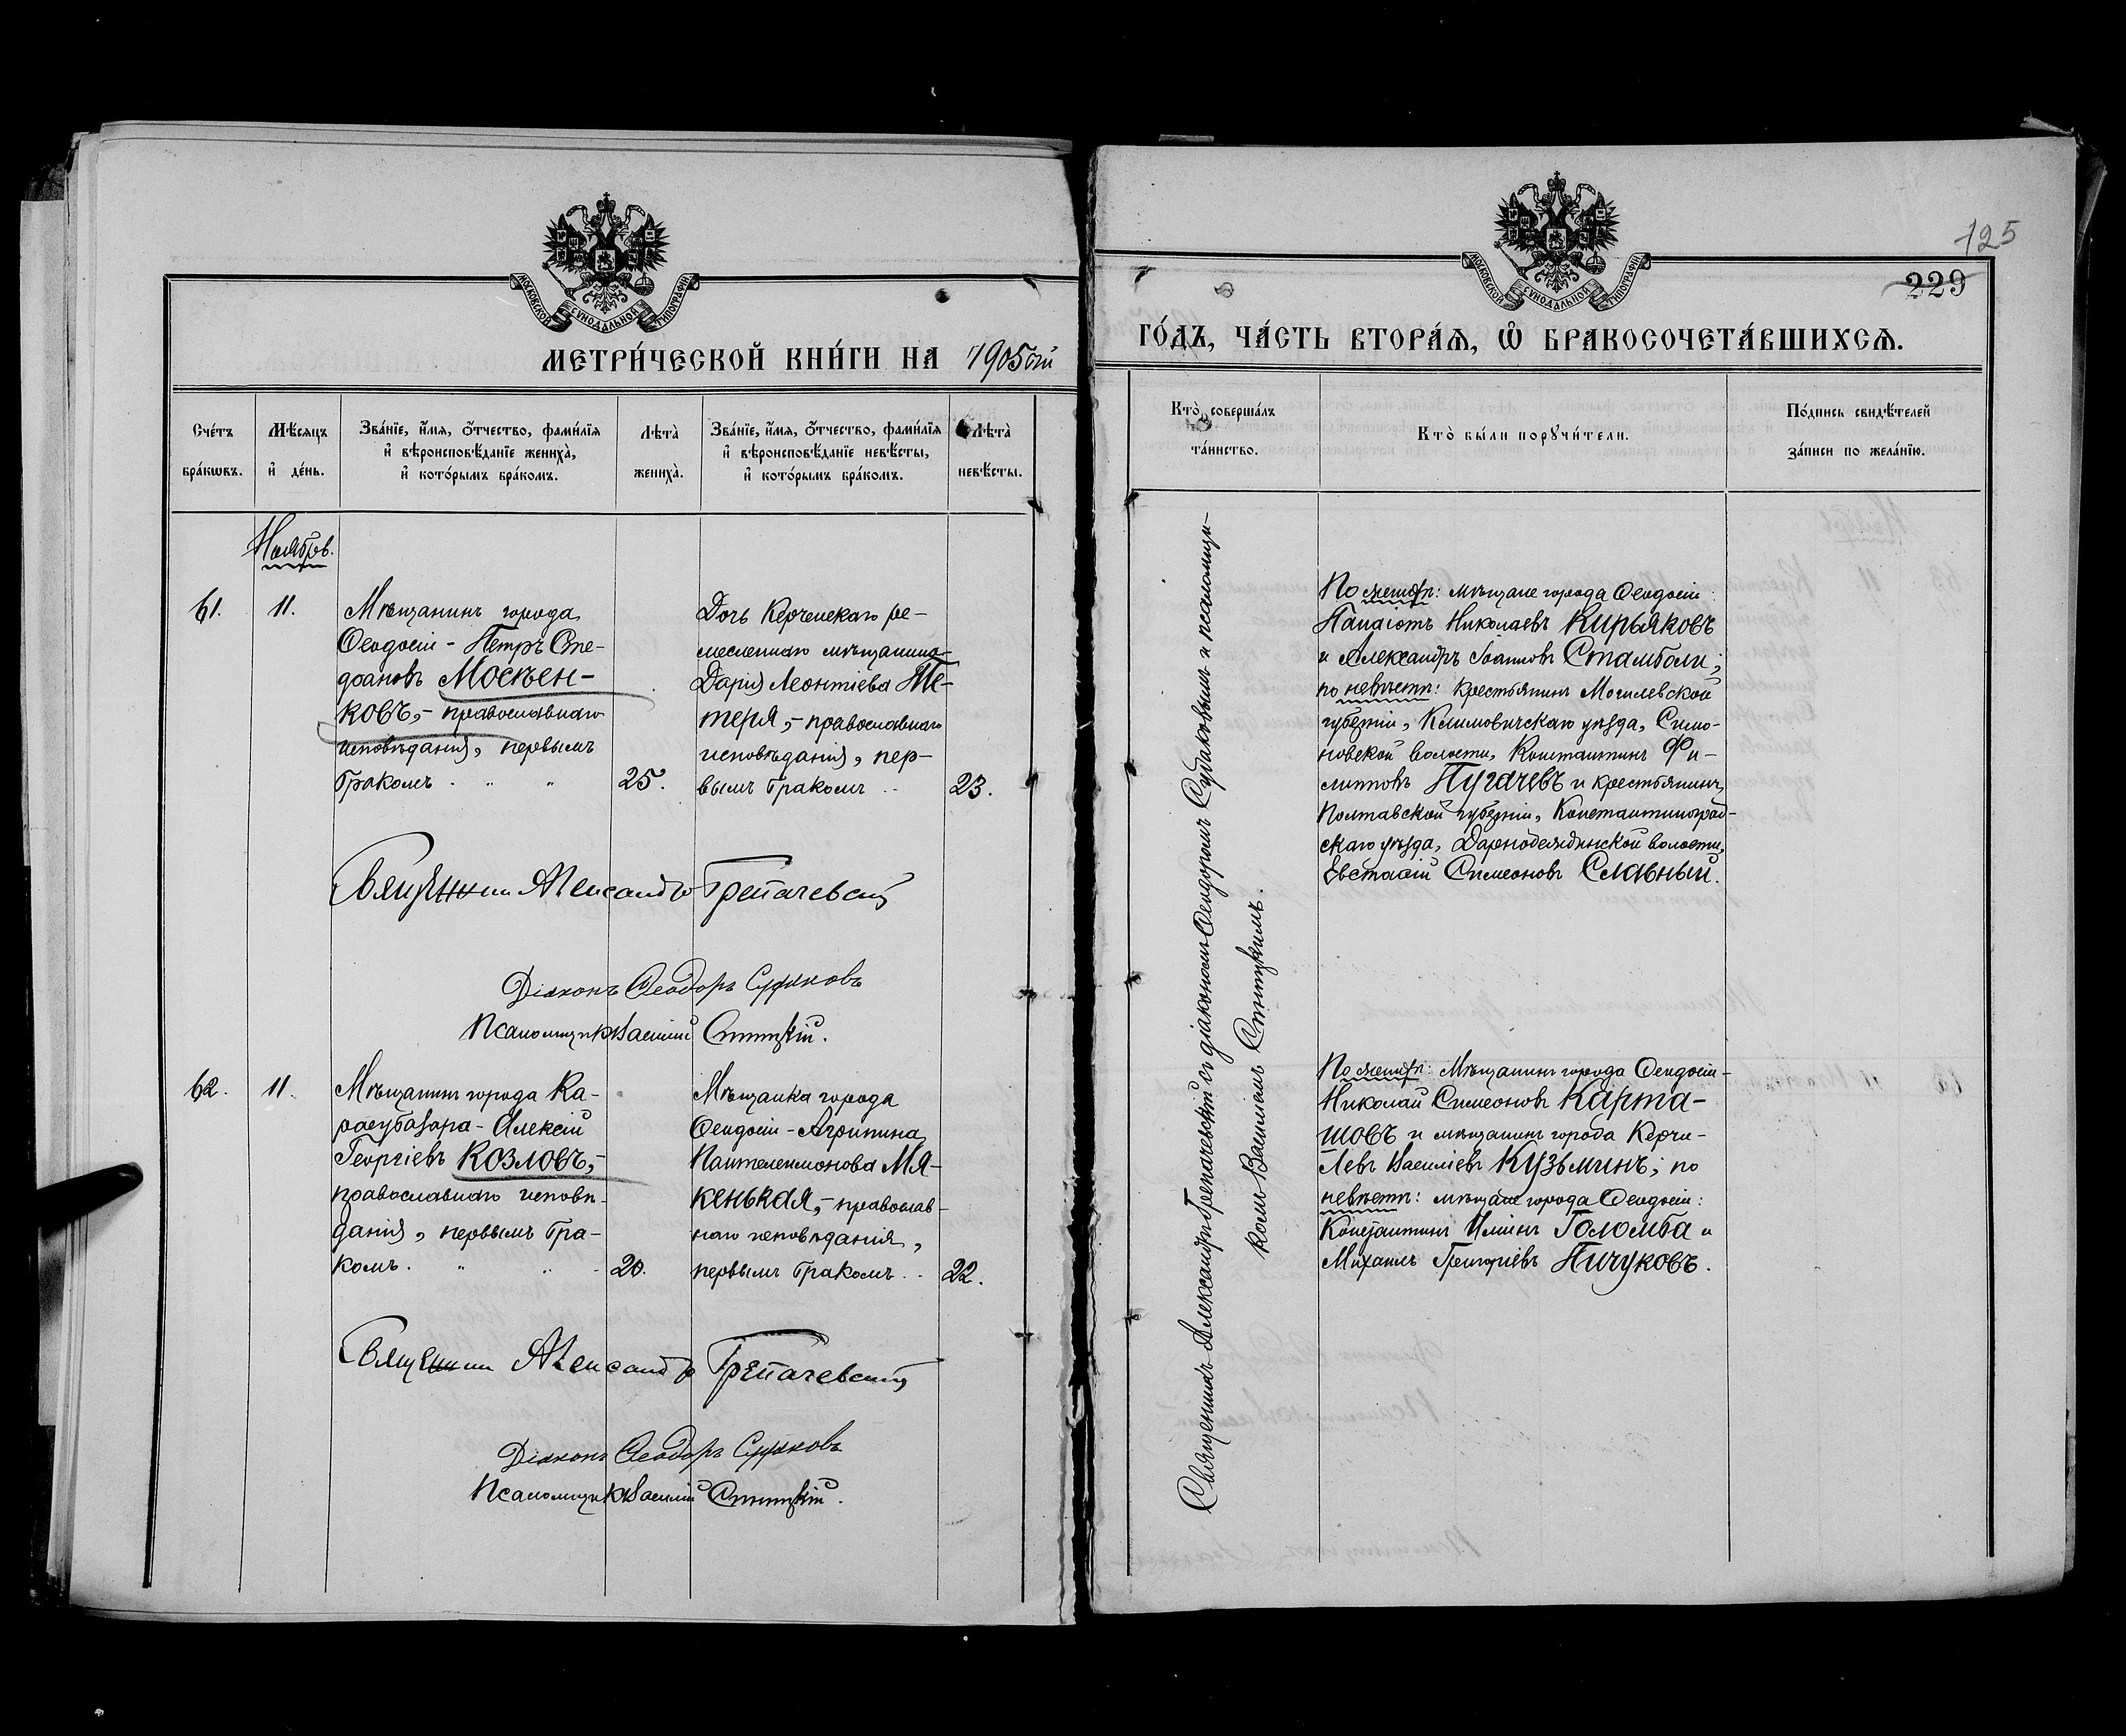 МОСКОВСКОЙ СѴНОДАЛЬНОЙ ТИПОГРАФІИ
МЕТРИ́ЧЕСКОЙ КНИ́ГИ НА 1905ый
Сче́тъ бра́кѡвъ.
Мѣ́сѧцъ и҆ де́нь.
Зва́нїе, и҆́мѧ, ѻ҆́тчество, фами́лїѧ
и҆ вѣроисповѣ́данїе жениха̀,
и҆ кото́рымъ бра́комъ.
Лѣта̀ жениха̀.
Зва́нїе, и҆́мѧ, ѻ҆́тчество, фами́лїѧ
и҆ вѣроисповѣ́данїе невѣ́сты,
и҆ кото́рымъ бра́комъ.
Лѣта̀ невѣ́сты.
Ноябрь.
61.
11.
Мѣщанинъ города
Ѳеодосіи - Петръ Сте-
фановъ Москен-
ковъ, - православнаго
исповѣданія, первымъ
бракомъ
25.
Дочь Керченскаго ре-
месленнаго мѣщанина
Дарія Леонтіева Те-
теря, - православнаго
исповѣданія, пер-
вымъ бракомъ
23.
Священник Александръ Трепачевский
Діаконъ Ѳеодоръ Судаковъ
Псаломщикъ Василій Ситицкій.
62.
11.
Мѣщанинъ города Ка-
расубазара - Алексій
Георгіевъ Козловъ, -
православнаго исповѣ-
данія, первымъ бра-
комъ.
20.
Мѣщанка города
Ѳеодосіи - Агрипина
Пантелеимонова Мя-
кенькая, - православ-
наго исповѣданія,
первымъ бракомъ
22.
Священник Александръ Трепачевский
Діаконъ Ѳеодоръ Судаковъ
Псаломщикъ Василій Ситицкій.
125
229
МОСКОВСКОЙ СѴНОДАЛЬНОЙ ТИПОГРАФІИ
ГО́ДЪ, ЧА́СТЬ ВТОРА́Ѧ, Ѡ҆ БРАКОСОЧЕТА́ВШИХСѦ.
Кто̀ соверша́лъ
та́инство.
Кто̀ бы́ли порꙋчи́тели.
По́дпись свидѣ́телей
за́писи по жела́нїю.
Священникъ Александръ Трепачевскій съ діакономъ Ѳеодоромъ Судаковымъ и псаломщи-
комъ Василіемъ Ситицкимъ.
По жениху: мѣщане города Ѳеодосіи:
Панаіотъ Николаевъ Кирьяковъ
и Александръ Іоанновъ Стамболи;
по невѣстѣ: крестьянинъ Могилевской
губерніи, Климовичскаго уѣзда, Симо-
новской волости, Константинъ Фи-
липповъ Пугачевъ и крестьянинъ
Полтавской губерніи, Константиноград-
скаго уѣзда, волости,
Евстафій Симеоновъ Славный.
По жениху: Мѣщанинъ города Ѳеодосіи -
Николай Симеоновъ Карта-
шовъ и мѣщанинъ города Керчи -
Левъ Василіевъ Кузьминъ; по
невѣстѣ: мѣщане города Ѳеодосіи:
Константинъ Ильинъ Голомба и
Михаилъ Григоріевъ Пичуковъ.